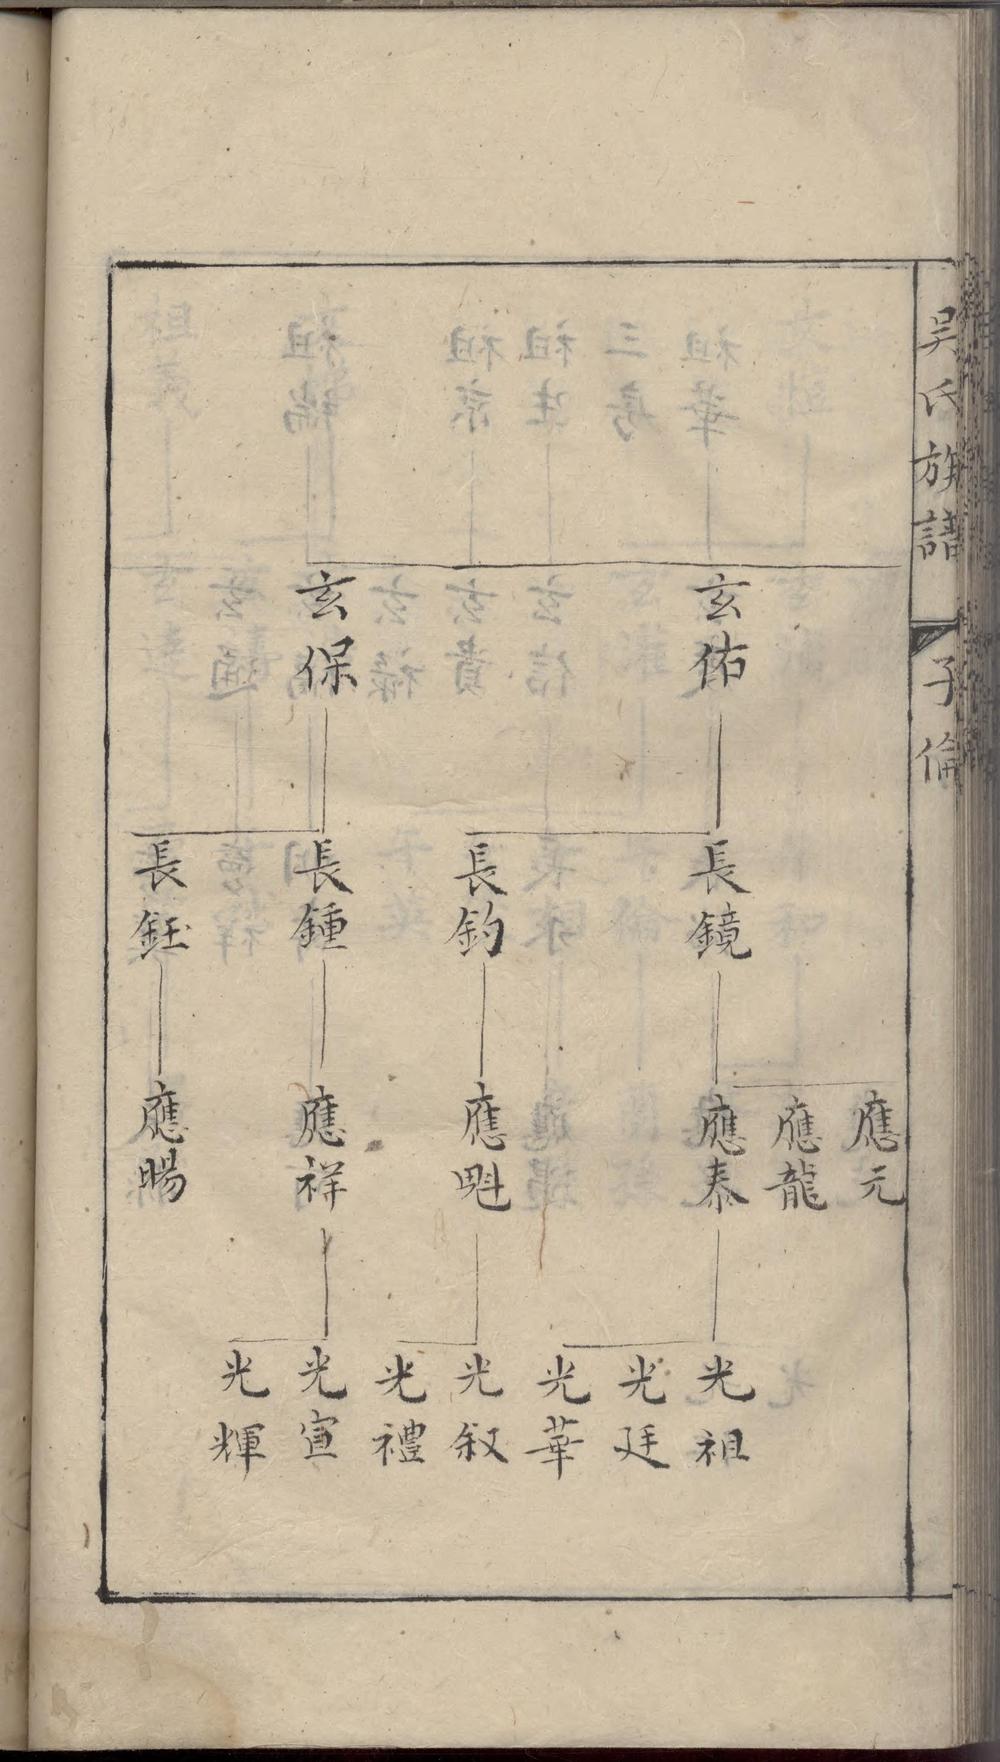 吳氏族譜
子倫
玄佑
玄保
長鏡
長鈞
長鍾
長鈺
應元
應龍
應泰
應魁
應祥
應暘
光祖
光廷
光華
光叙
光禮
光宣
光輝